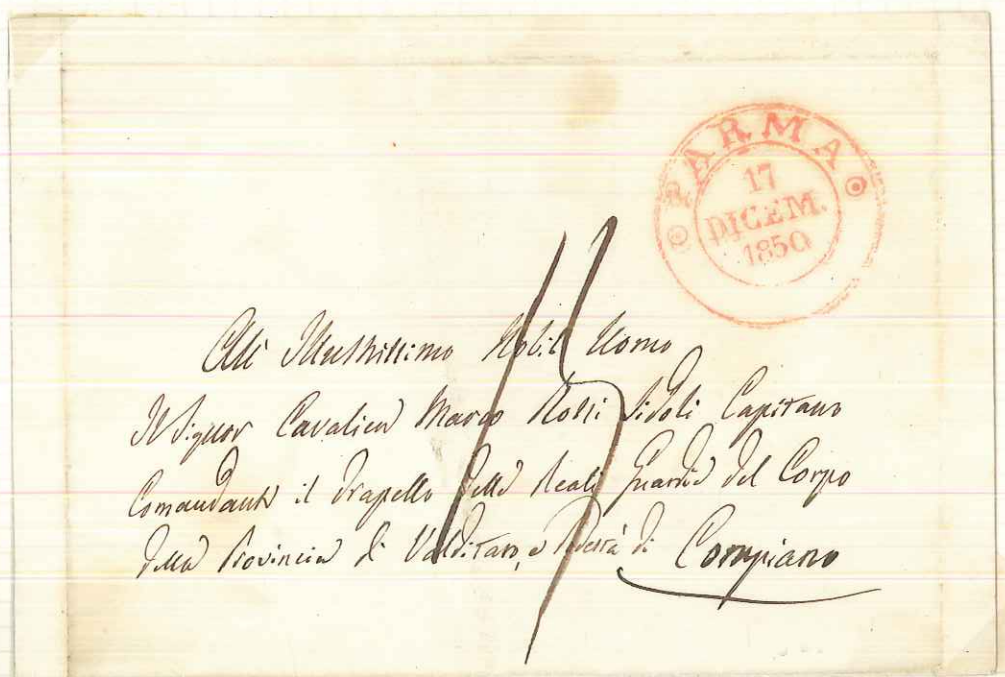 PARMA
17
DICEM.
1850
15
All' Illustrissimo Nobil Uomo
Il Signor Cavalier Marco Rossi Sidoli Capitano
Comandante il Drapello delle Reali Guardie del Corpo
della Provincia di Valditaro, e Podestà di Compiano